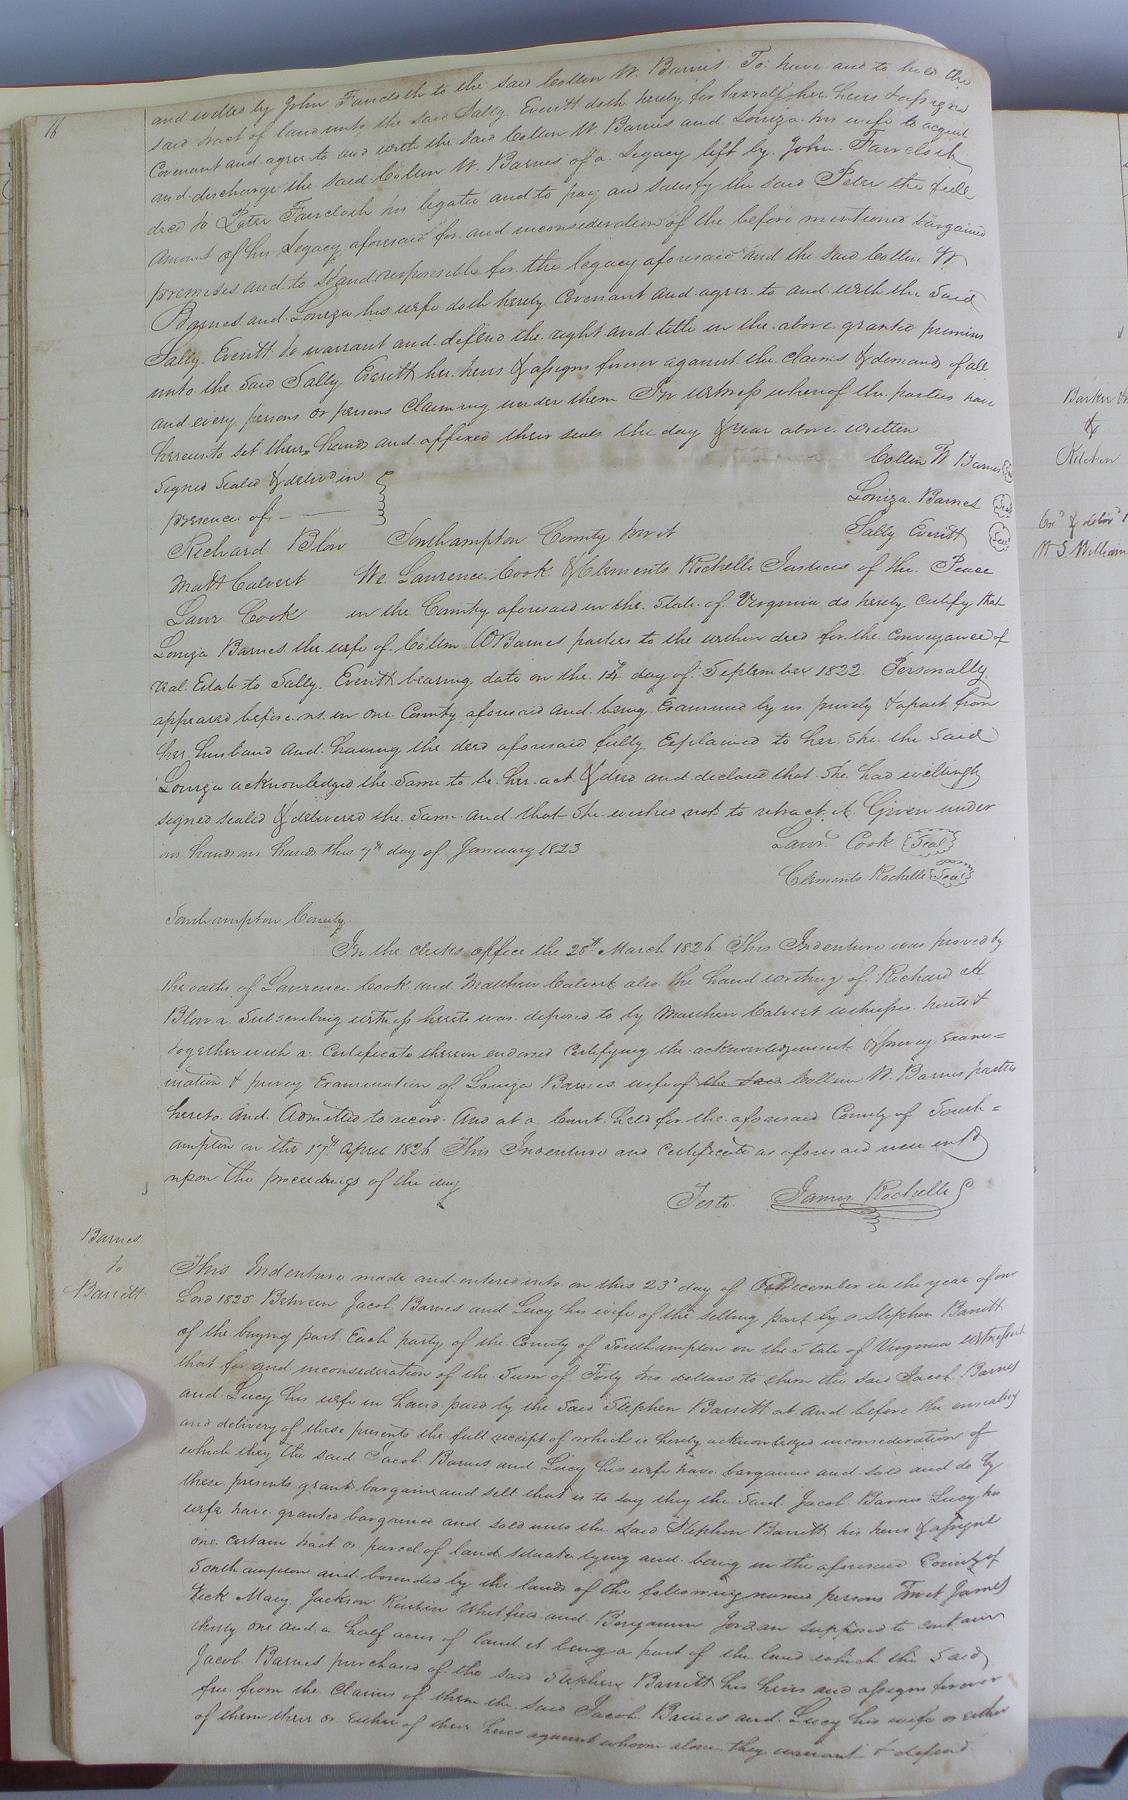 16
and willed by John Faircloth to the said Collin W. Barnes. To have and to hold the
said tract of land unto the said Sally Everitt doth hereby for herself her heirs & assigns
Covenant and agree to and with the said Collin W. Barnes and Louiza his wife to acquit
and discharge the said Collin W. Barnes of a Legacy left by John Faircloth
decd to Peter Faircloth his legatee and to pay and satisfy the said Peter the full
amount of his Legacy aforesaid for and inconsideration of the before mentioned bargained
premises and to stand responsible for the legacy aforesaid and the said Collin W
Barnes and Louiza his wife doth hereby Covenant and agree to and with the said
Sally Everitt to warrant and defend the right and title in the above granted premises
unto the said Sally Everitt her heirs & assigns forever against the claims & demands of all
and every persons or persons claiming under them In witness whereof the parties have
hereunto set their hands and affixed their seals the day & year above written
Signed Sealed & delivd in
presence of
Collin W Barnes Seal
Louiza Barnes Seal
Sally Everitt Seal
Richard Blow
Matt Calvert
Lawr Cook
Southampton County to wit
We Lawrence Cook & Clements Rochelle Justices of the Peace
in the County aforesaid in the State of Virginia do hereby certify that
Louiza Barnes the wife of Collin W Barnes parties to the within deed for the conveyance of
real Estate to Sally Everitt bearing date on the 14th day of September 1822 Personally
appeared before us in our County aforesaid and being Examined by us privily & apart from
her husband and having the deed aforesaid fully Explained to her she the said
Louiza acknowledged the same to be her act & deed and declared that she had willingly
signed sealed & delivered the same and that she wished not to retract it Given under
our hands this 7th day of January 1823
Lawr Cook Seal
Clements Rochelle Seal
Southampton County
In the clerks office the 28th March 1826 This Indenture was proved by
the oaths of Lawrence Cook and Matthew Calvert also the hand writing of Richard
Blow a Subscribing witness hereto was deposed to by Matthew Calvert witnesses hereto &
together with a Certificate thereon endorsed Certifying the acknowledgement & privy Exam=
ination & privey Examination of Louiza Barnes wife of the said Collin W. Barnes parties
hereto and Admitted to record And at a Court held for the aforesaid County of South=
ampton on the 17th April 1826 This Indenture and Certificate as aforesaid were entd
upon the proceedings of the day
Teste James Rochelle
Barnes
to
Barritt
This Indenture made and entered into on this 23d day of December in the year of our
Lord 1825 Between Jacob Barnes and Lucy his wife of the selling part & Stephen Barritt
of the buying part Each party of the County of Southampton in the State of Virginia witnesseth
that for and inconsideration of the Sum of Forty two dollars to them the said Jacob Barnes
and Lucy his wife in hand paid by the said Stephen Barritt at and before the ensealing
and delivery of these presents the full receipt of which is hereby acknowledged inconsideration of
which they the said Jacob Barnes and Lucy his wife have bargained and sold and do by
these presents grant bargain and sell that is to say they the said Jacob Barnes Lucy his
wife have granted bargained and sold unto the said Stephen Barritt his heirs & assigns
one certain tract or parcel of land situate lying and being in the aforesaid County of
Southampton and bounded by the lands of the following named persons Towit James
Vick Mary Jackson Reubin Whitfield and Benjamin Jordan supposed to contain
thirty one and a half acres of land it being a part of the land which the said
Jacob Barnes purchased of the said Stephen Barritt his heirs and assigns forever
free from the Claims of them the said Jacob Barnes and Lucy his wife or either
of them their or Either of their heirs against whom alone they warrant & defend
Barker
&
Kitchen
W S William